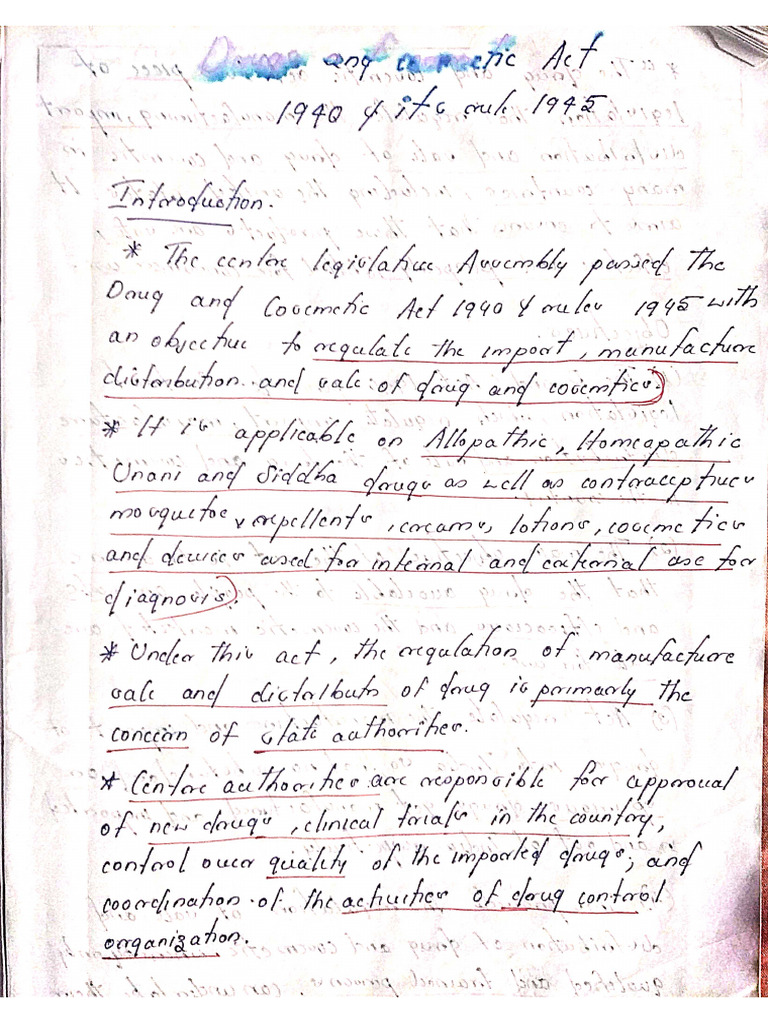 Drugs and cosmetic Act
1940 & its rule 1945
Introduction.
* The centre legislative Assembly passed the
Drug and Cosmetic Act 1940 & rules 1945 with
an objective to regulate the import, manufacture
distribution and sale of drug and cosmetics.
* It is applicable on Allopathic, Homeopathic
Unani and Siddha drugs as well as contraceptives
mosquetoes, repellents, creams, lotions, cosmetics
and devices used for internal and external use for
diagnosis.
* Under this act, the regulation of manufacture
sale and distributn of drug is primarly the
concern of state authorities.
* Centre authorities are responsible for approval
of new drugs, clinical trials in the country,
control over quality of the imported drugs, and
coordination of the activities of drug control
organization.